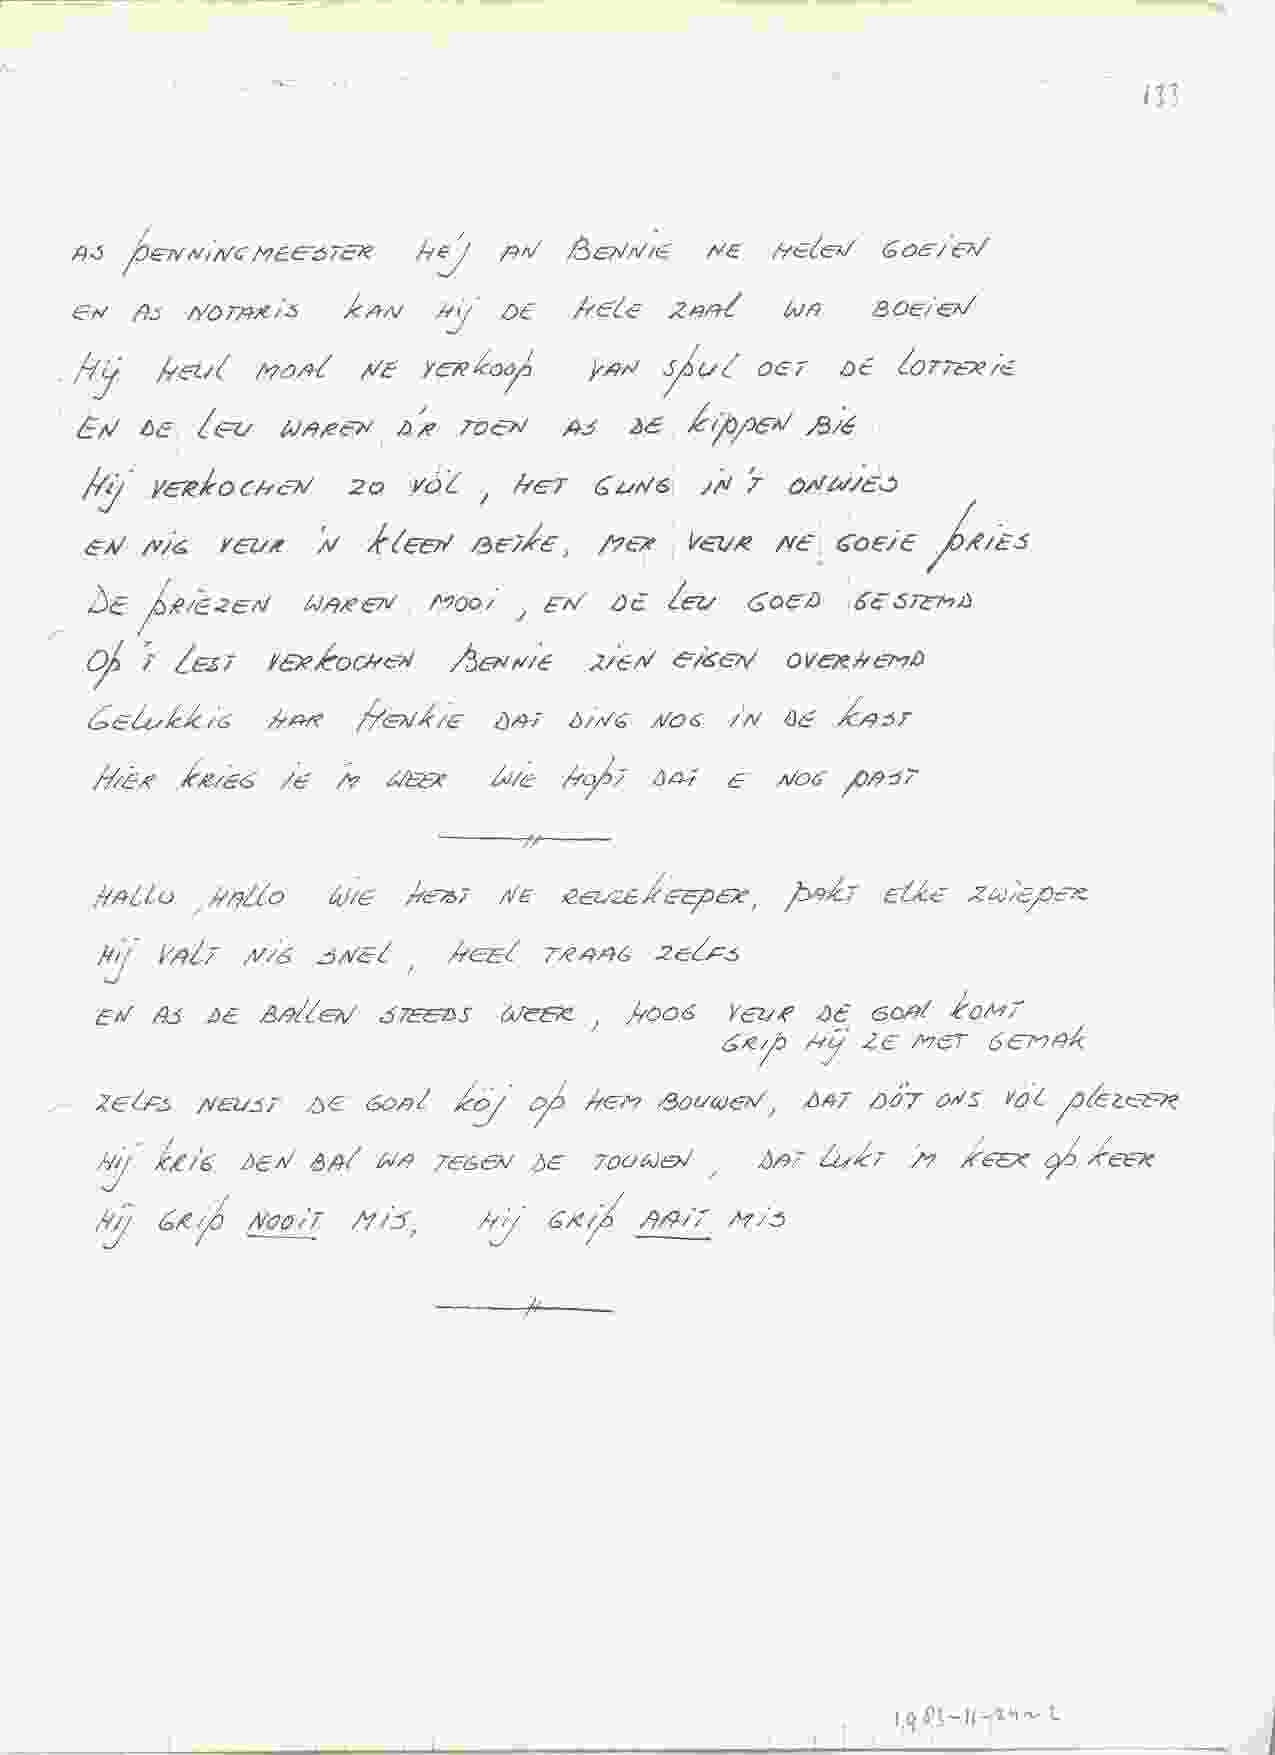 133
AS PENNINGMEESTER HÉJ AN BENNIE NE HELEN GOEIEN
EN AS NOTARIS KAN HIJ DE HELE ZAAL WA BOEIEN
HIJ HEUL MOAL NE VERKOOP VAN SPUL OET DE LOTTERIE
EN DE LEU WAREN D'R TOEN AS DE KIPPEN BIE
HIJ VERKOCHEN ZO VÖL, HET GUNG IN 'T ONWIES
EN NIG VEUR 'N KLEEN BETKE, MER VEUR NE GOEIE PRIES
DE PRIEZEN WAREN MOOI, EN DE LEU GOED GESTEMD
OP 'T LEST VERKOCHEN BENNIE ZIEN EIGEN OVERHEMD
GELUKKIG HAR HENKIE DAT DING NOG IN DE KAST
HIER KRIEG IE 'M WEER WIE HOPT DAT E NOG PAST
HALLO, HALLO WIE HEBT NE REUZEKEEPER, PAKT ELKE ZWIEPER
HIJ VALT NIG SNEL, HEEL TRAAG ZELFS
EN AS DE BALLEN STEEDS WEER, HOOG VEUR DE GOAL KOMT
GRIP HIJ ZE MET GEMAK
ZELFS NEUST DE GOAL KÖJ OP HEM BOUWEN, DAT DÖT ONS VÖL PLEZEER
HIJ KRIG DEN BAL WA TEGEN DE TOUWEN, DAT LUKT 'M KEER OP KEER
HIJ GRIP NOOIT MIS, HIJ GRIP AAIT MIS